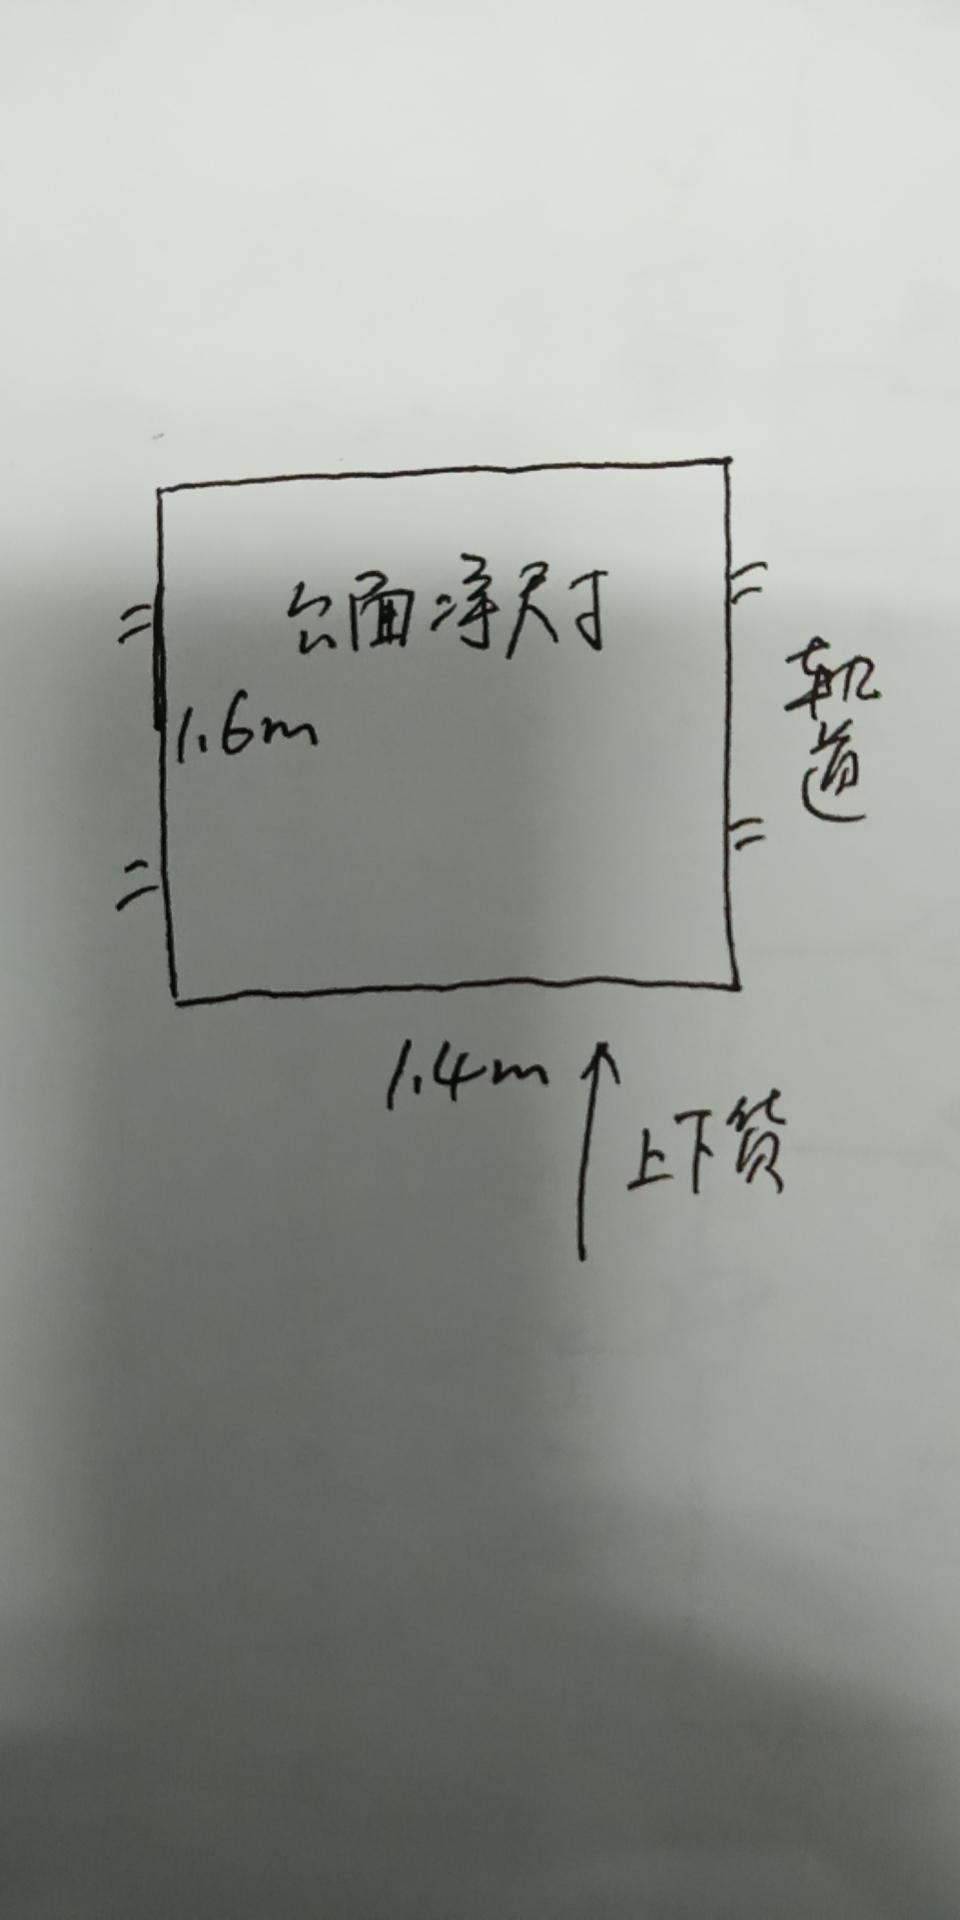 台面净尺寸
1.6m
轨道
1.4m
上下货